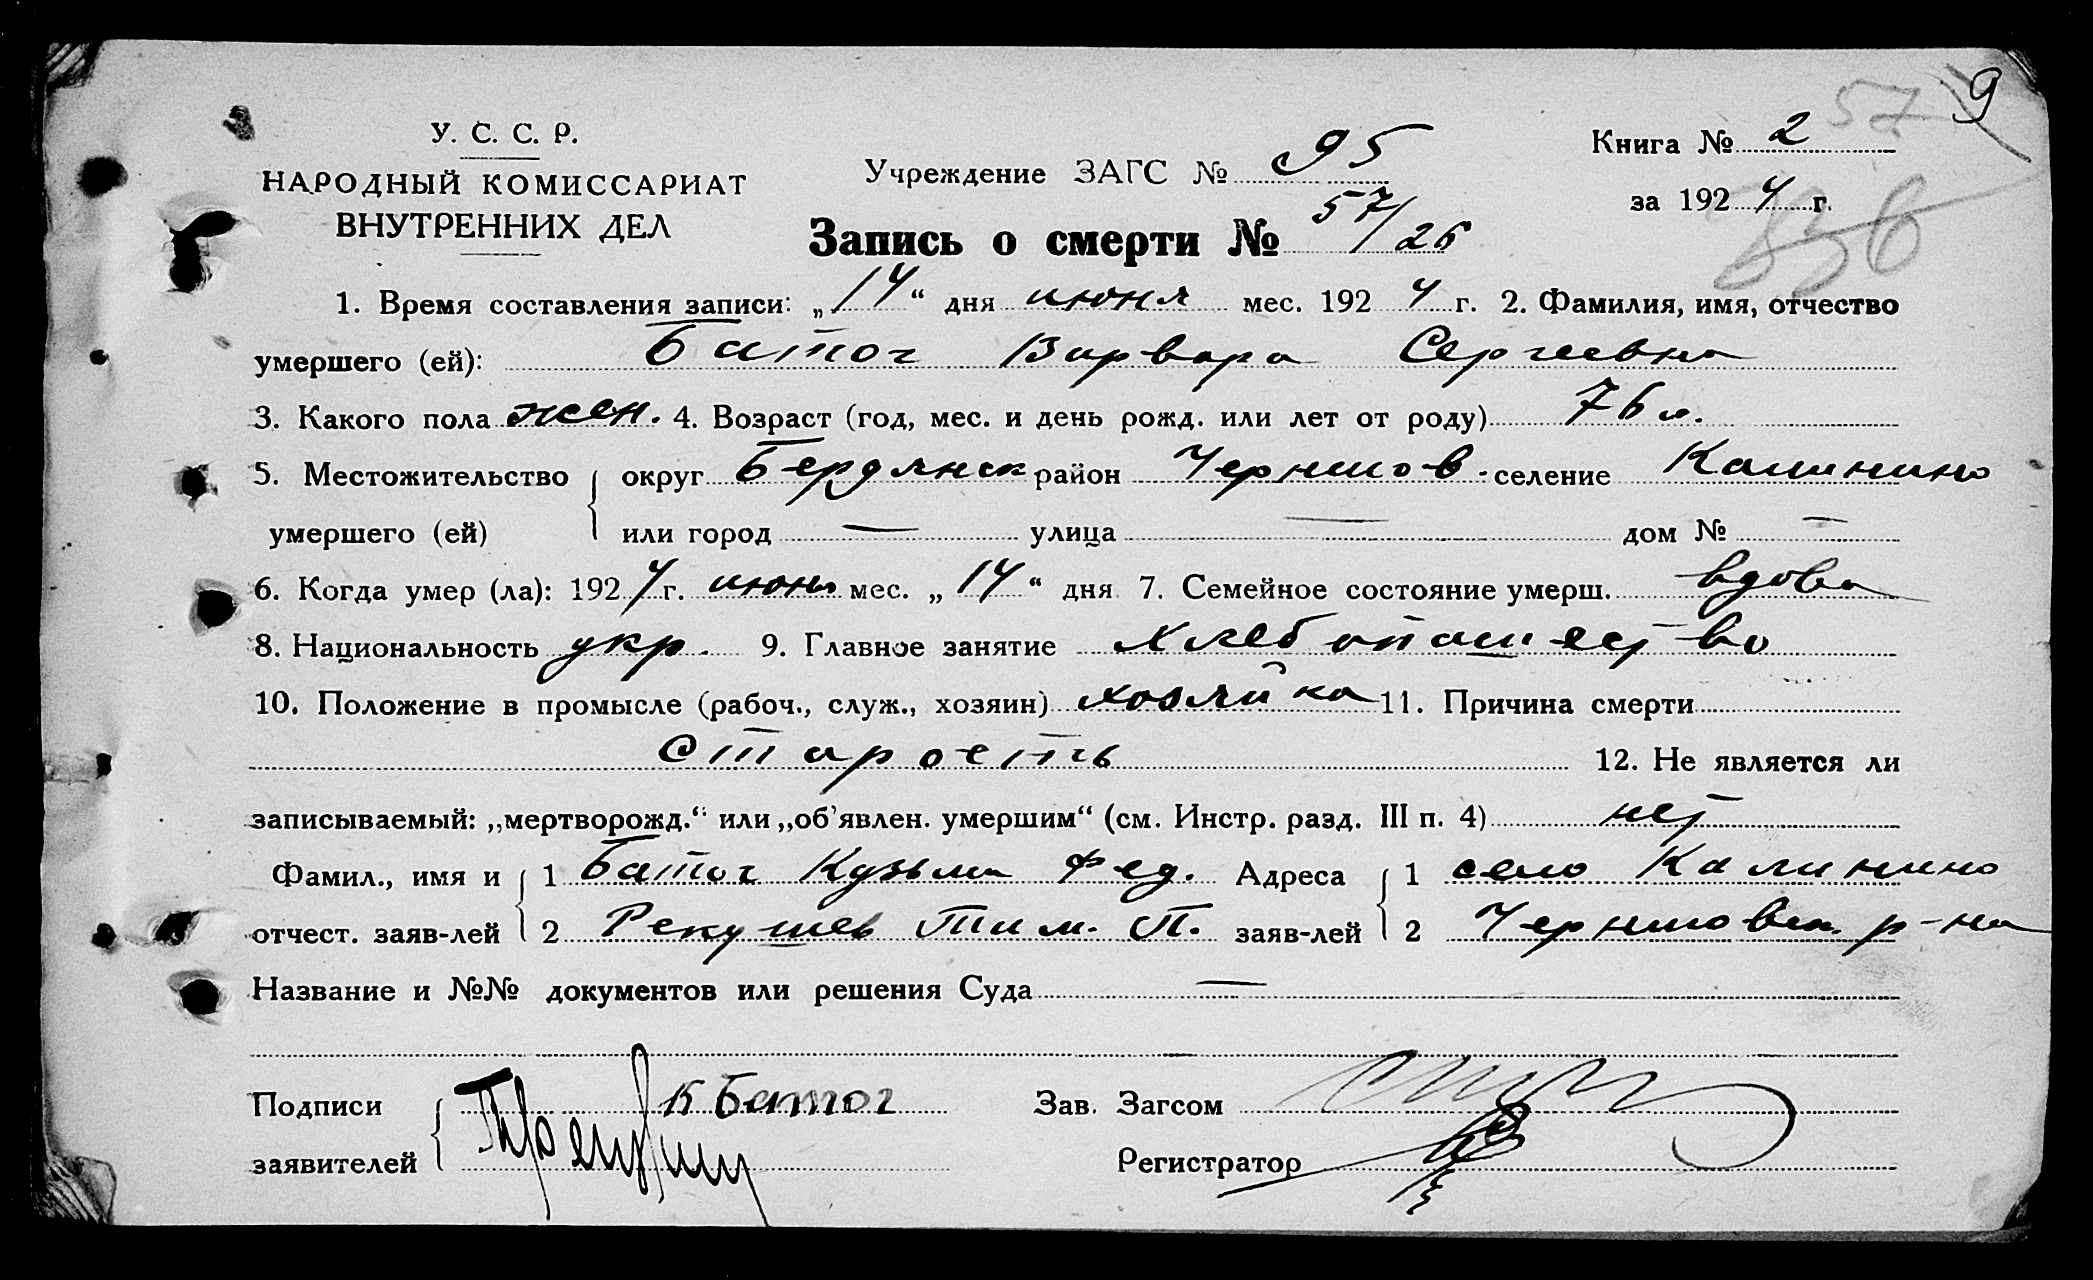 57 9
У. С. С. Р.
НАРОДНЫЙ КОМИССАРИАТ
ВНУТРЕННИХ ДЕЛ
Учреждение ЗАГС № 95
Запись о смерти № 57/26
Книга № 2
за 1924 г.
536
1. Время составления записи: „14“ дня июня мес. 1924 г. 2. Фамилия, имя, отчество
умершего (ей): Батог Варвара Сергеевна
3. Какого пола жен. 4. Возраст (год, мес. и день рожд. или лет от роду) 76 л.
5. Местожительство округ Бердянск район Чернигов. селение Калинино
умершего (ей) или город — улица — дом № —
6. Когда умер (ла): 1924 г. июня мес. „14“ дня 7. Семейное состояние умерш. вдова
8. Национальность укр. 9. Главное занятие хлебопашество
10. Положение в промысле (рабоч., служ., хозяин) хозяйка 11. Причина смерти
старость 12. Не является ли
записываемый: „мертворожд.“ или „об'явлен. умершим“ (см. Инстр. разд. III п. 4) нет
Фамил., имя и 1 Батог Кузьма Фед. Адреса 1 село Калинино
отчест. заяв-лей 2 Тим. П. заяв-лей 2 Черниговск. р-на
Название и №№ документов или решения Суда —
Подписи К Батог Зав. Загсом
заявителей Регистратор